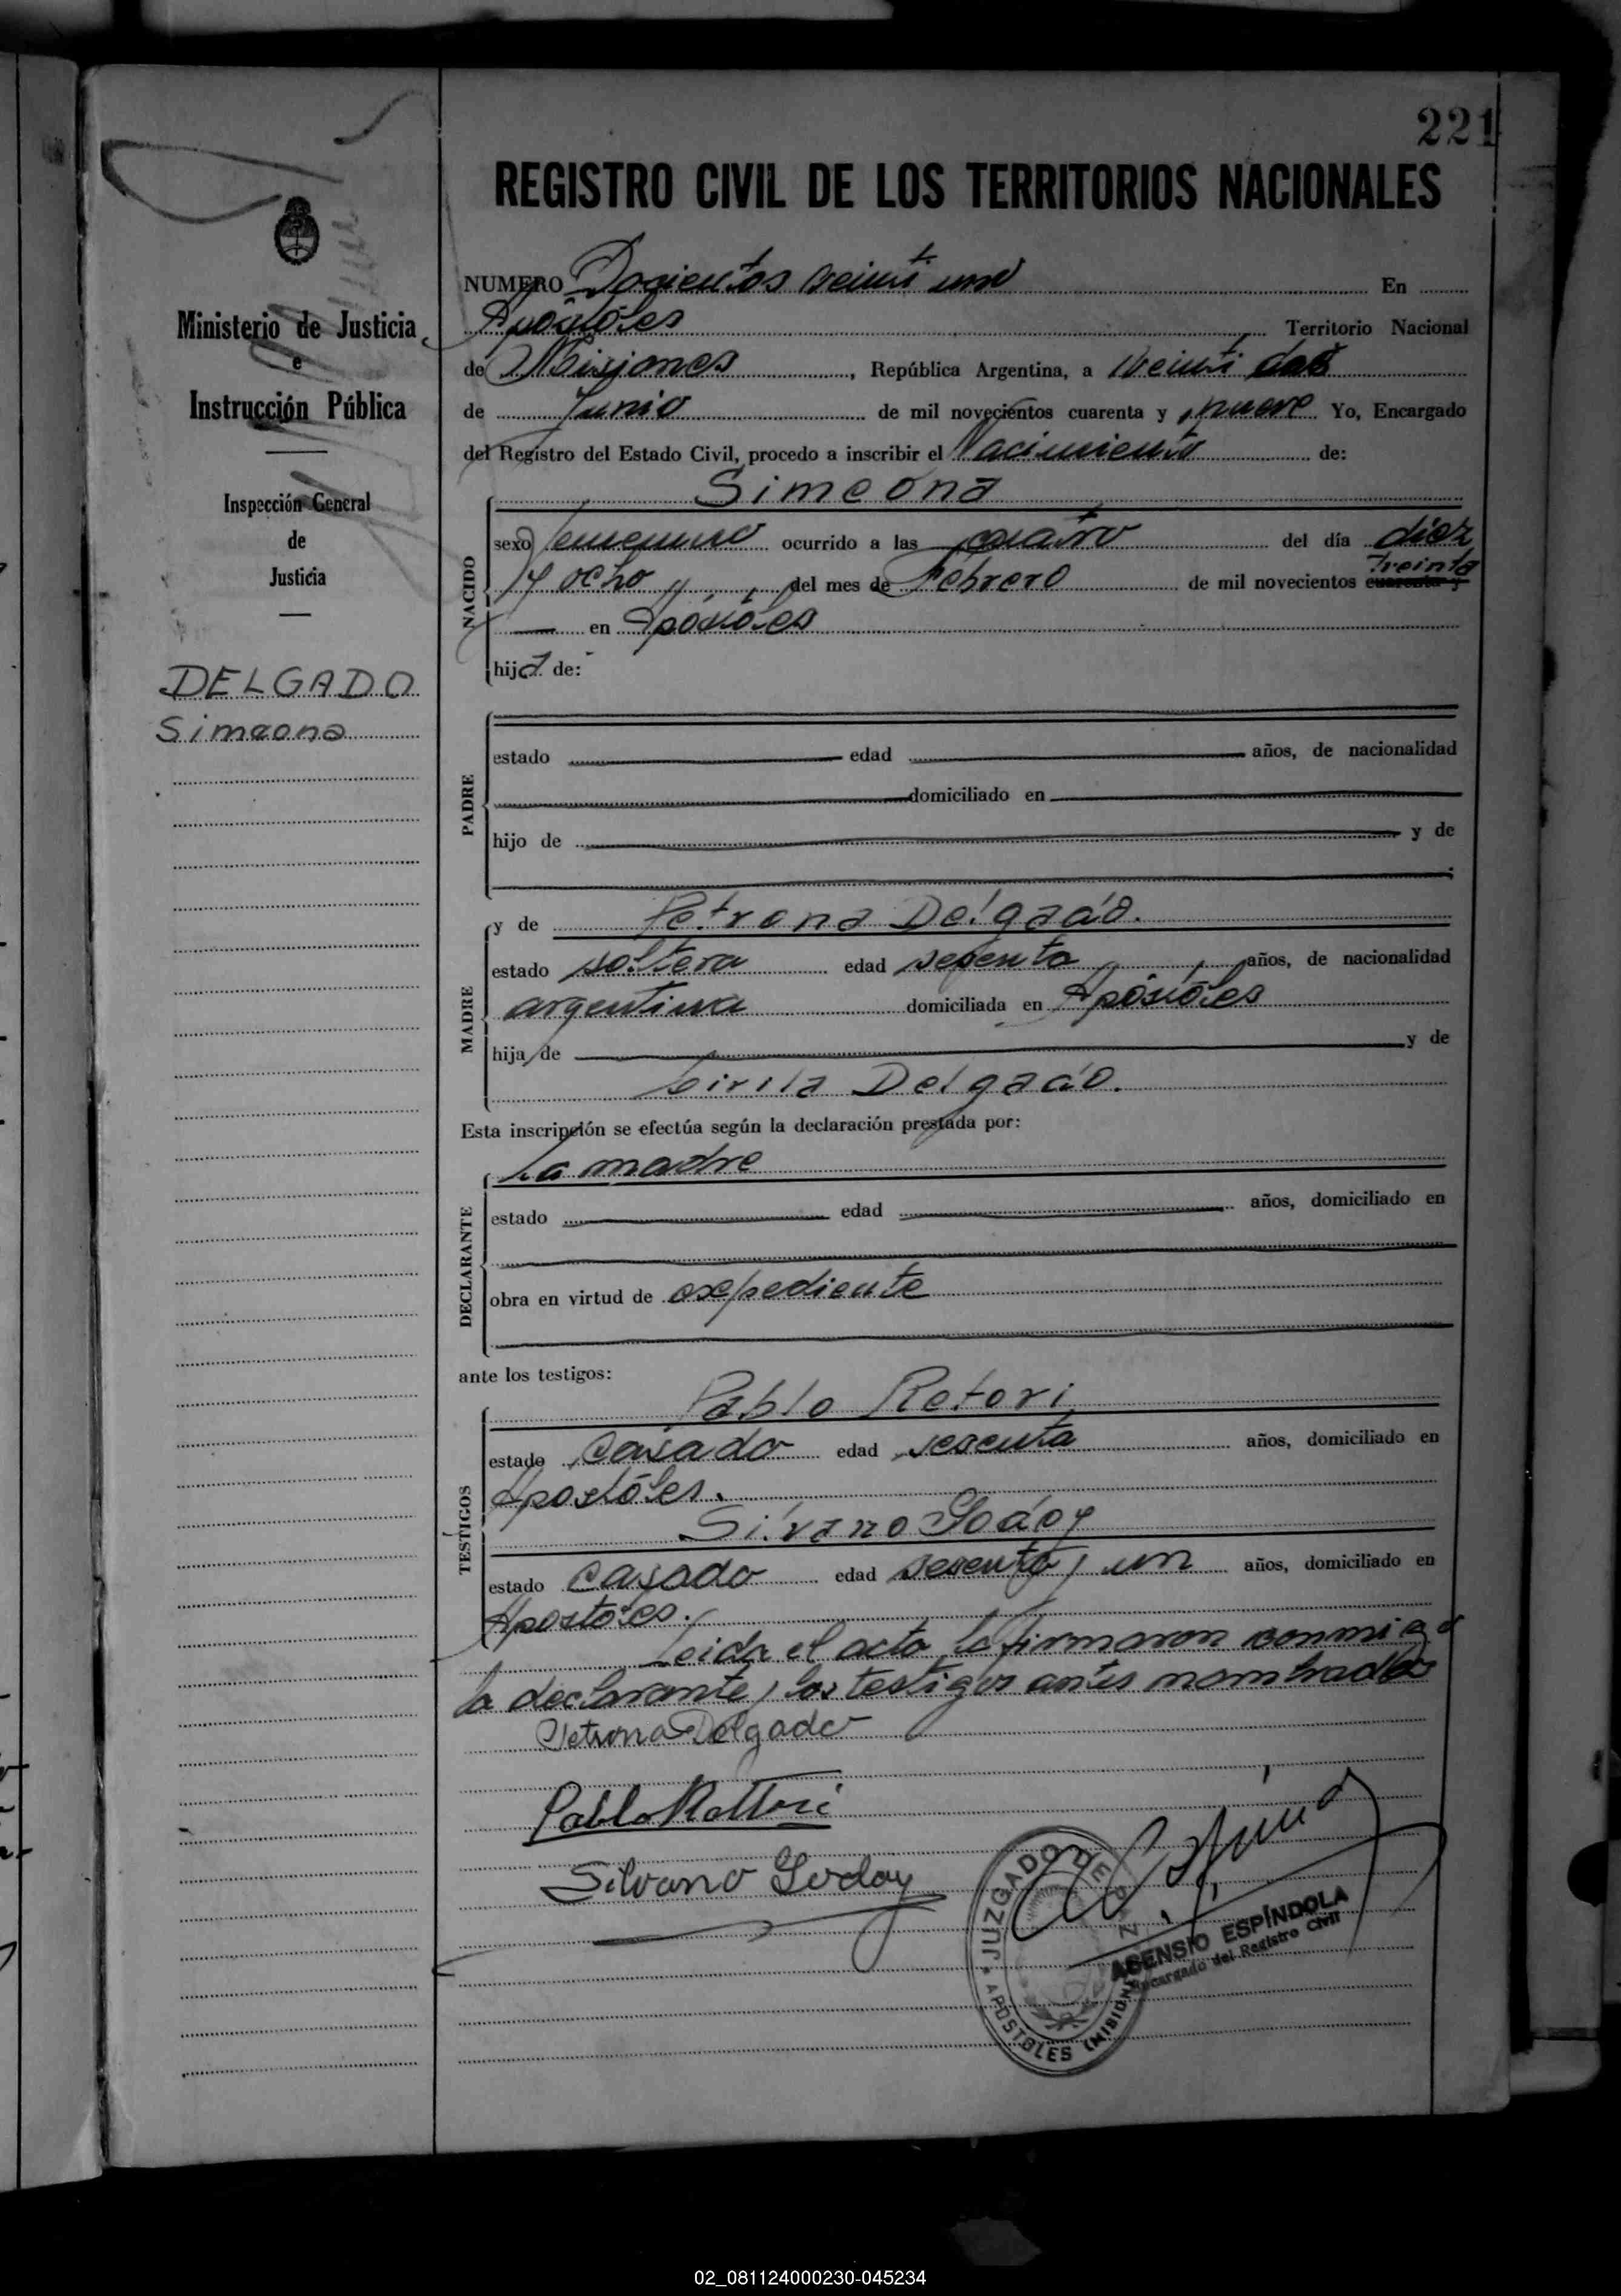 221
REGISTRO CIVIL DE LOS TERRITORIOS NACIONALES
Ministerio de Justicia
e
Instrucción Pública
Inspección General
de
Justicia
DELGADO
Simeona
NUMERO Docientos veinti uno En
Apóstoles Territorio Nacional
de Misiones, República Argentina, a Veinti dos
de Junio de mil novecientos cuarenta y nueve Yo, Encargado
del Registro del Estado Civil, procedo a inscribir el Nacimiento de:
Simeona
NACIDO
sexo femenino ocurrido a las cuatro del día diez
y ocho del mes de Febrero de mil novecientos cuarenta y Treinta
en Apóstoles
hija de:
PADRE
estado edad años, de nacionalidad
domiciliado en
hijo de y de
y de Petrona Delgado.
MADRE
estado soltera edad años, de nacionalidad
argentina domiciliada en Apóstoles
hija de y de
Cirila Delgado.
Esta inscripción se efectúa según la declaración prestada por:
La madre
DECLARANTE
estado edad años, domiciliado en
obra en virtud de expediente
ante los testigos:
Pablo Retori
TESTIGOS
estado Casado edad sesenta años, domiciliado en
Apostóles.
Silvano Godoy
estado Casado edad sesenta y un años, domiciliado en
Apostoles.
Leida el acta la firmaron conmigo
la declarante y los testigos antes nombrados
Petrona Delgado
Pablo Rettori
Silvano Godoy
JUZGADO DE PAZ
APOSTOLES (MISIONES)
ASENSIO ESPÍNDOLA
Encargado del Registro Civil
02_081124000230-045234